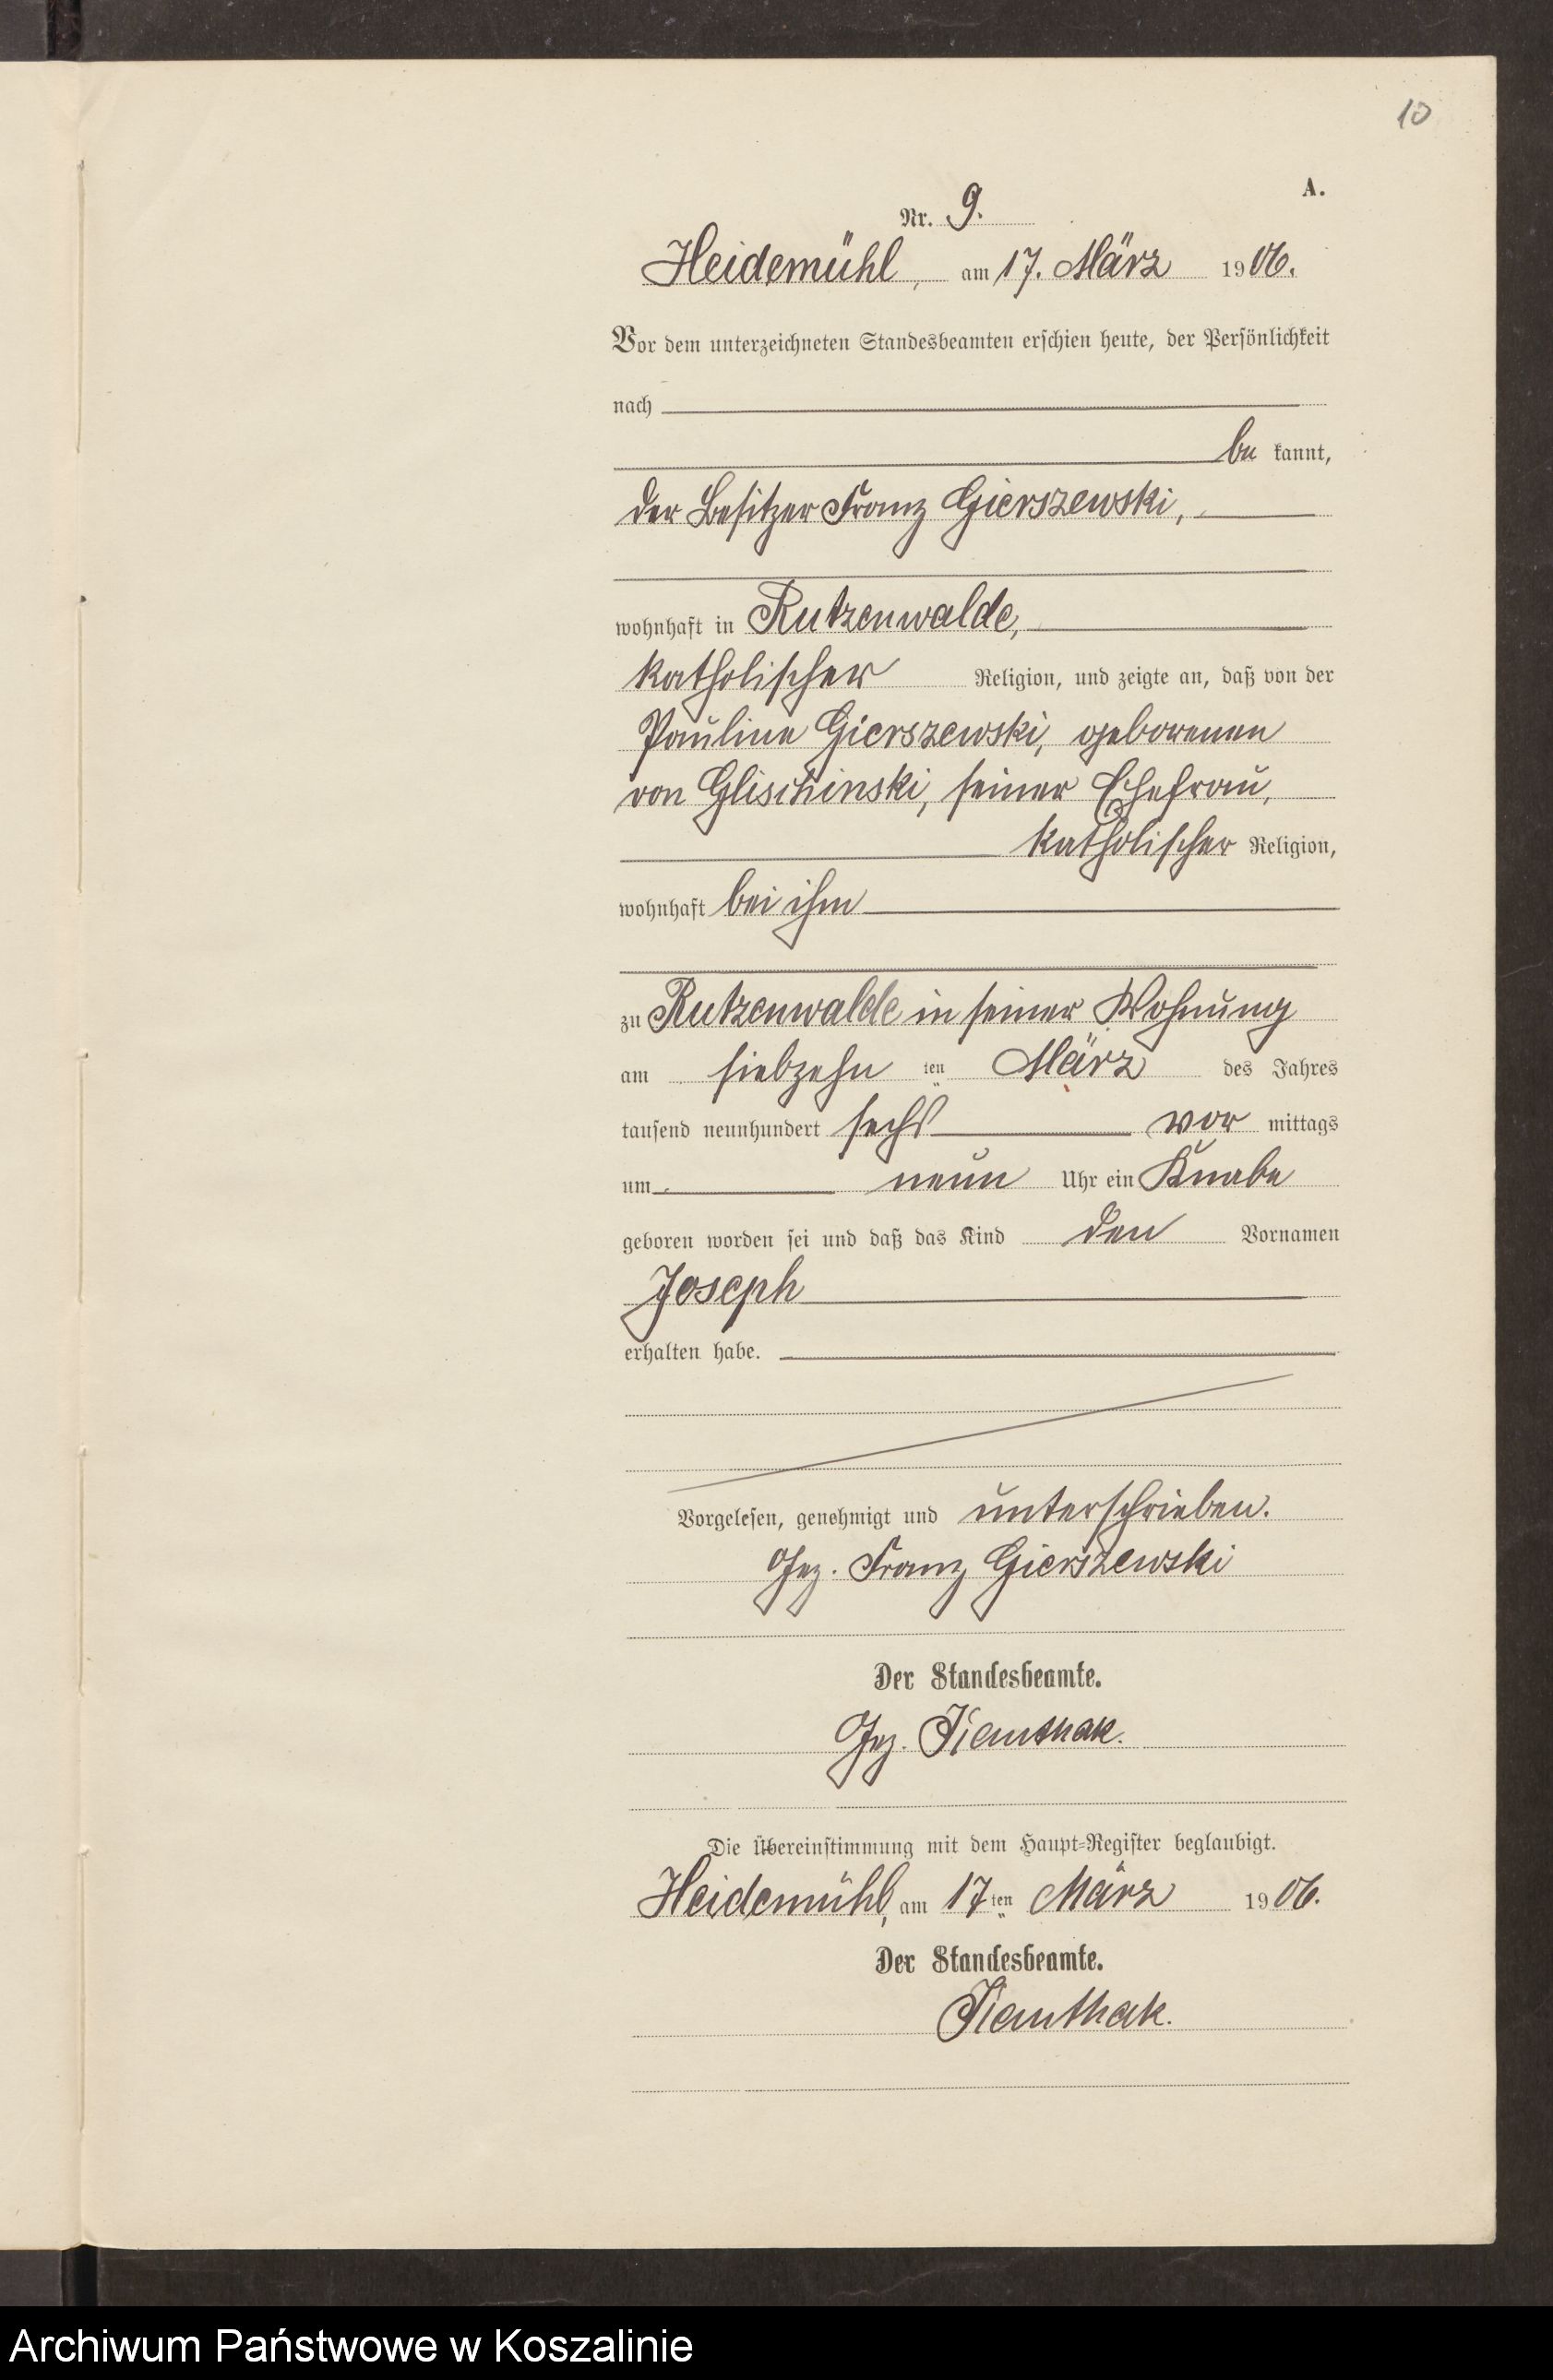 10
A.
Nr. 9.
Heidemühl, am 17. März 1906.
Vor dem unterzeichneten Standesbeamten erschien heute, der Persönlichkeit
nach
be kannt,
der Besitzer Franz Gierszewski,
wohnhaft in Rutzenwalde,
katholischer Religion, und zeigte an, daß von der
Pauline Gierszewski, geborenen
von Glischinski, seiner Ehefrau,
katholischer Religion,
wohnhaft bei ihm
zu Rutzenwalde in seiner Wohnung
am siebzehn ten März des Jahres
tausend neunhundert sechs vor mittags
um neun Uhr ein Knabe
geboren worden sei und daß das Kind den Vornamen
Joseph
erhalten habe.
Vorgelesen, genehmigt und unterschrieben.
Gez. Franz Gierszewski
Der Standesbeamte.
Gez.
Die Übereinstimmung mit dem Haupt-Register beglaubigt.
Heidemühl, am 17ten März 1906.
Der Standesbeamte.
Archiwum Państwowe w Koszalinie